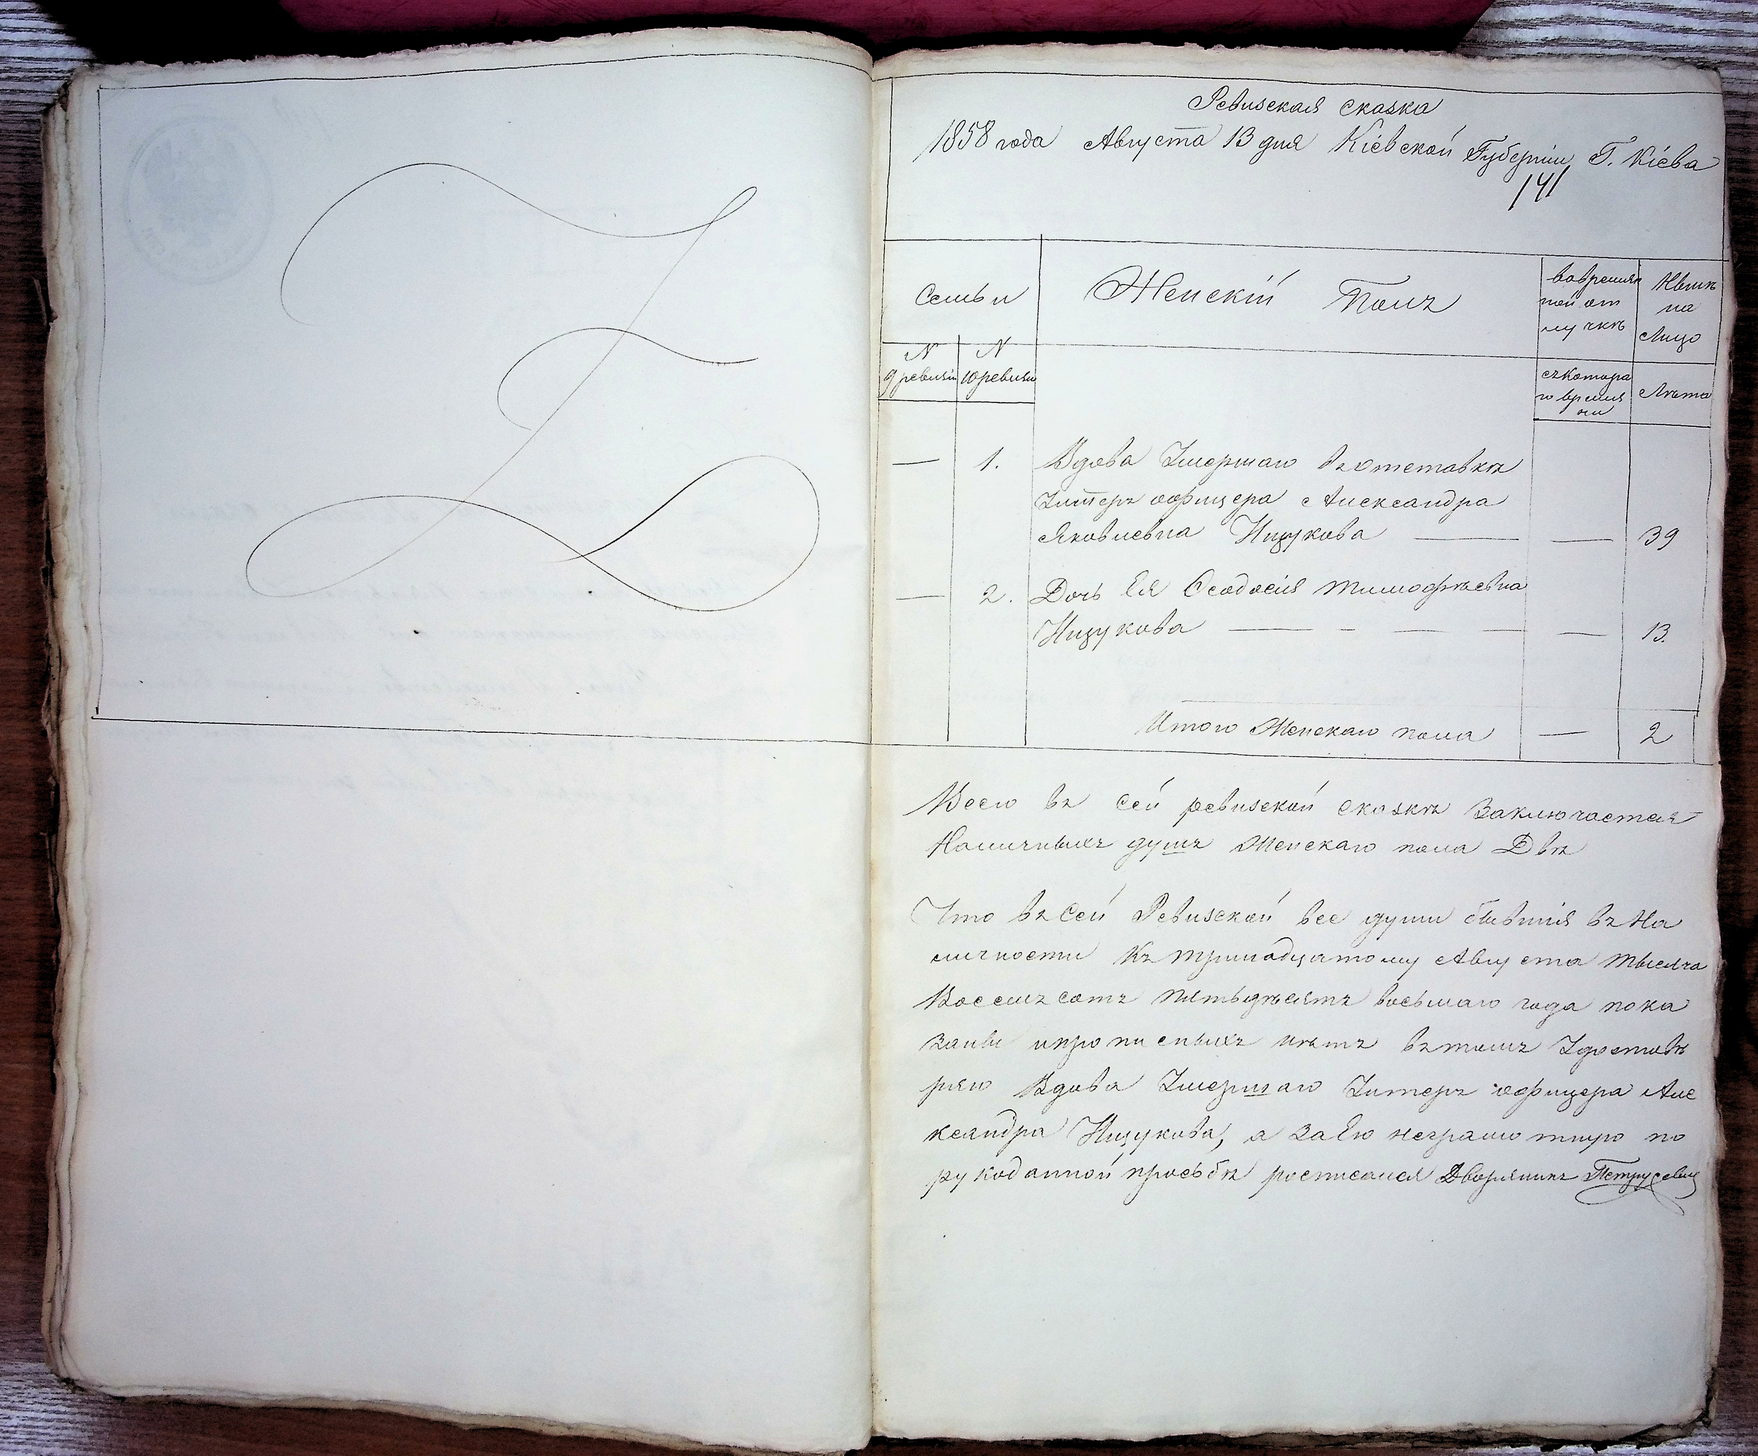 Ревизская сказка
1858 года Августа 13 дня Кіевской Губерніи, Г. Кіева
141
Семьи
Женскій Полъ
вовремян
ной от
лучкѣ
Нынѣ
на
Лицо
N
9 ревизіи
N
10 ревизіи
съкотора
го времня
ни
Лѣта
— 1. Вдова Умершаго въ отставкѣ
Унтеръ офицера Александра
Яковлевна Ницукова — — 39
— 2. Дочь Ея Ѳеодосія Тимофѣевна
Ницукова — - — — — 13.
Итого Женскаго пола — 2
Всего въ сей ревизской сказкѣ Заключается
Наличныхъ душъ Женскаго пола Двѣ
Что въ Сей Ревизской все души бывшія въ На
личности Къ тринадцатому Августа тысяча
Восемъ сотъ пятьдѣсятъ восьмаго года пока
заны и прописныхъ нѣтъ въ томъ Удостовѣ
ряю Вдова Умершаго Унтеръ офицера Але
ксандра Ницукова, а За Ею неграмотную по
рукоданной прозьбѣ росписался Дворянинъ Петрусевич